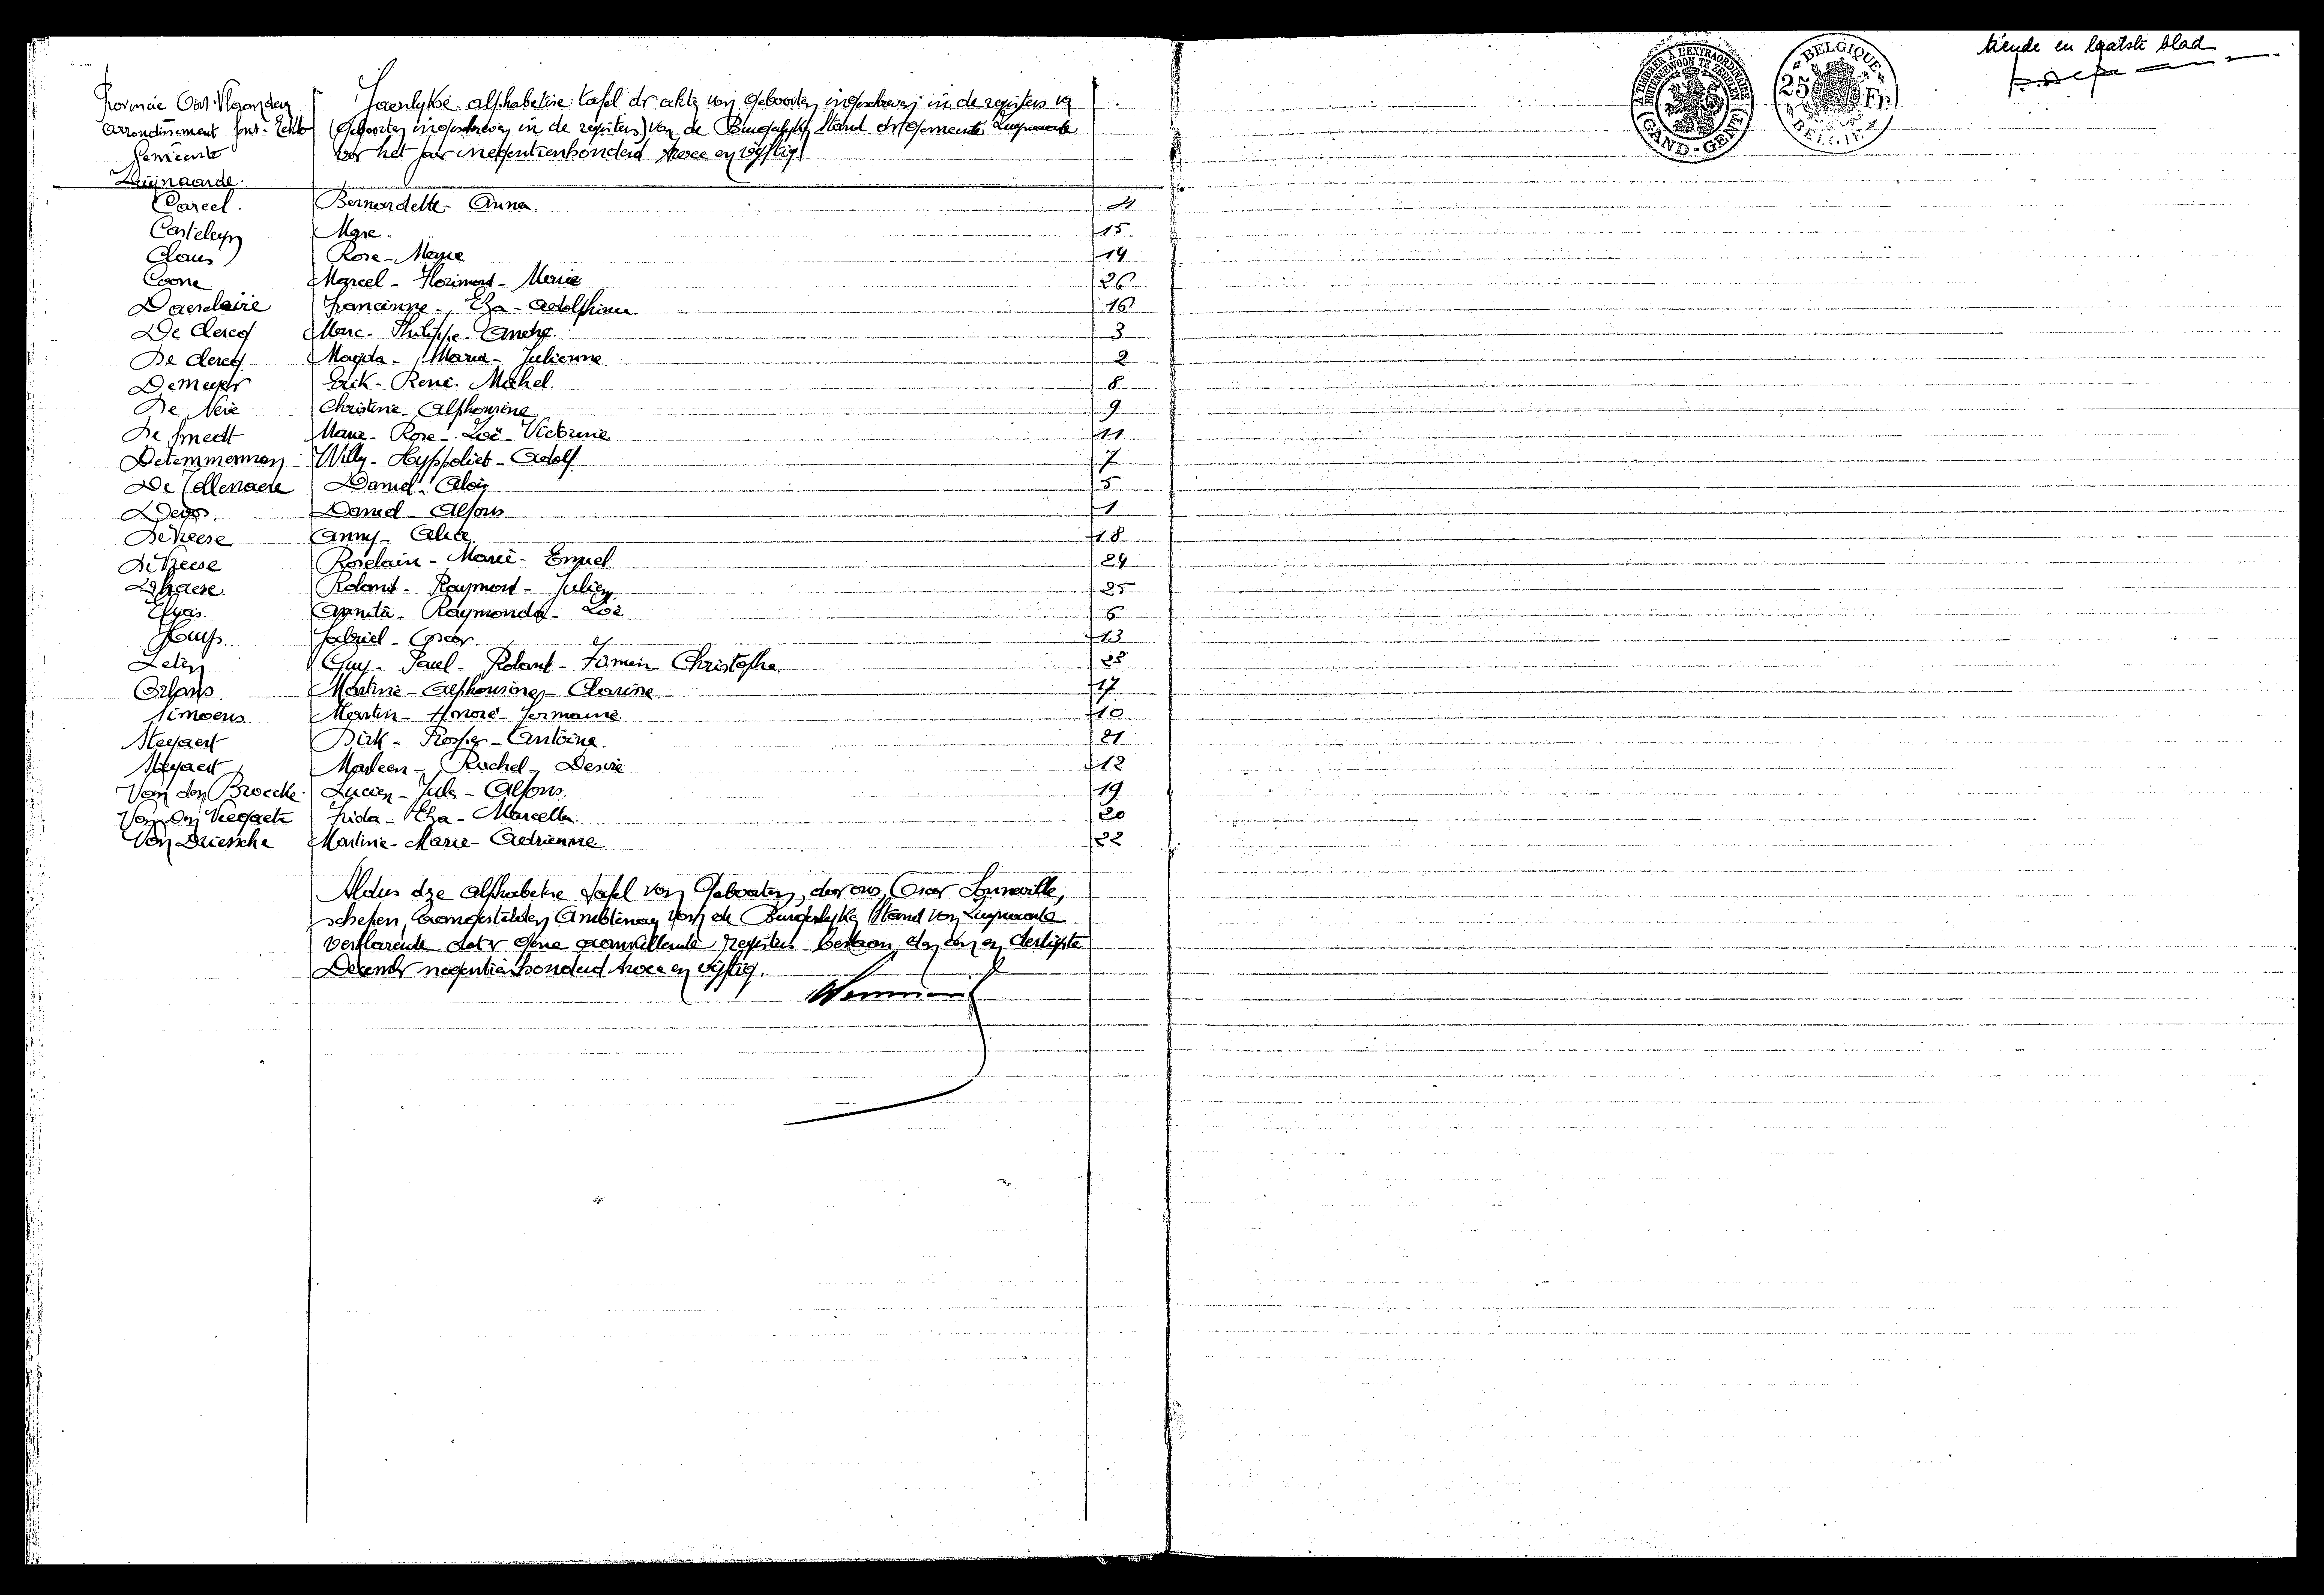 Provincie Oost-Vlaanderen
Arrondissement Gent-Eekloo
Gemeente
Zwijnaarde.
Jaarlykse alphabetise tafel der akten van Geboorten ingeschreven in de registers van
(Geboorten ingeschreven in de registers) van de Burgerlyken Stand der Gemeente
voor het jaar negentienhonderd twee en vyftig.
Careel. Bernardette - Anna. 4
Casteleyn Marc. 15
Claus Rose - Marie 14
Coone Marcel - Florimond - Marie 26
Daesclaire Francinne - Elza - Adolphina 16
De Clercq Marc - Philippe - André. 3
De Clercq Magda - Maria - Julienne. 2
De Meyer Erik - René - Michel. 8
De Neve Christine - Alphonsine 9
De Smedt Marie - Rose - Zoë - Victorine 11
Detemmerman Willy - Hyppoliet - Adolf 7
De Tollenaere Daniel - Alois 5
Devos. Daniel - Alfons 1
De Veese Anny - Alice 18
De Veese Roselain - Marie - Emiel 24
Dhaese. Roland - Raymond - Julien 25
Elyas. Annita - Raymonda - Zoë. 6
Huys. Gabriel - Oscar. 13
Leten Guy - Paul - Roland - Firmin - Christophe. 23
Orlans Martine - Alphonsine - Clarine 17
Simoens Martin - Honoré - Germaine. 10
Steyaert Dirk - Roger - Antoine. 21
Steyaert Marleen - Rachel - Desiré 12
Van den Broecke Lucien - Jules - Alfons. 19
Van den Frida - Elza - Marcella. 20
Van Driessche Martine - Marie - Adrienne. 22
Aldus deze alphabetise tafel van Geboorten, door ons, Oscar
schepen, Ambtenaar van de Burgerlyke Stand van
verklarende dat er gene aanvullende registers bestaan, den een en dertigste
December negentienhonderd twee en vijftig.
A TIMBRER A L'EXTRAORDINAIRE
BUITENGEWOON TE ZEGELEN
(GAND-GENT)
BELGIQUE
25 Fr.
BELGIË
tiende en laatste blad